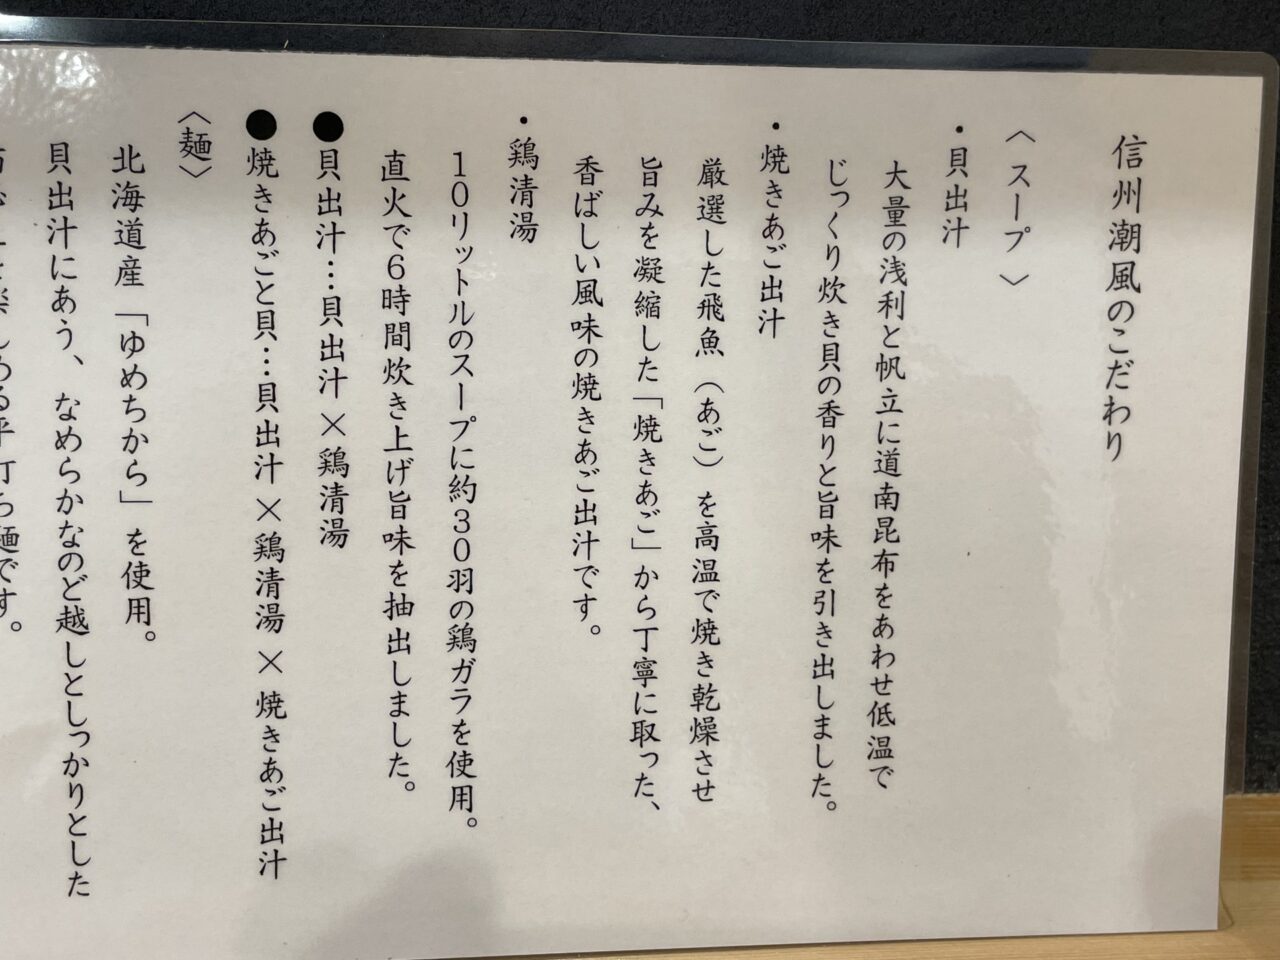 信州潮風のこだわり
〈スープ〉
・貝出汁
大量の浅利と帆立に道南昆布をあわせ低温で
じっくり炊き貝の香りと旨味を引き出しました。
・焼きあご出汁
厳選した飛魚（あご）を高温で焼き乾燥させ
旨みを凝縮した「焼きあご」から丁寧に取った、
香ばしい風味の焼きあご出汁です。
・鶏清湯
10リットルのスープに約30羽の鶏ガラを使用。
直火で6時間炊き上げ旨味を抽出しました。
●貝出汁…貝出汁×鶏清湯
●焼きあごと貝…貝出汁×鶏清湯×焼きあご出汁
〈麺〉
北海道産「ゆめちから」を使用。
貝出汁にあう、なめらかなのど越しとしっかりとした
める平打ち麺です。